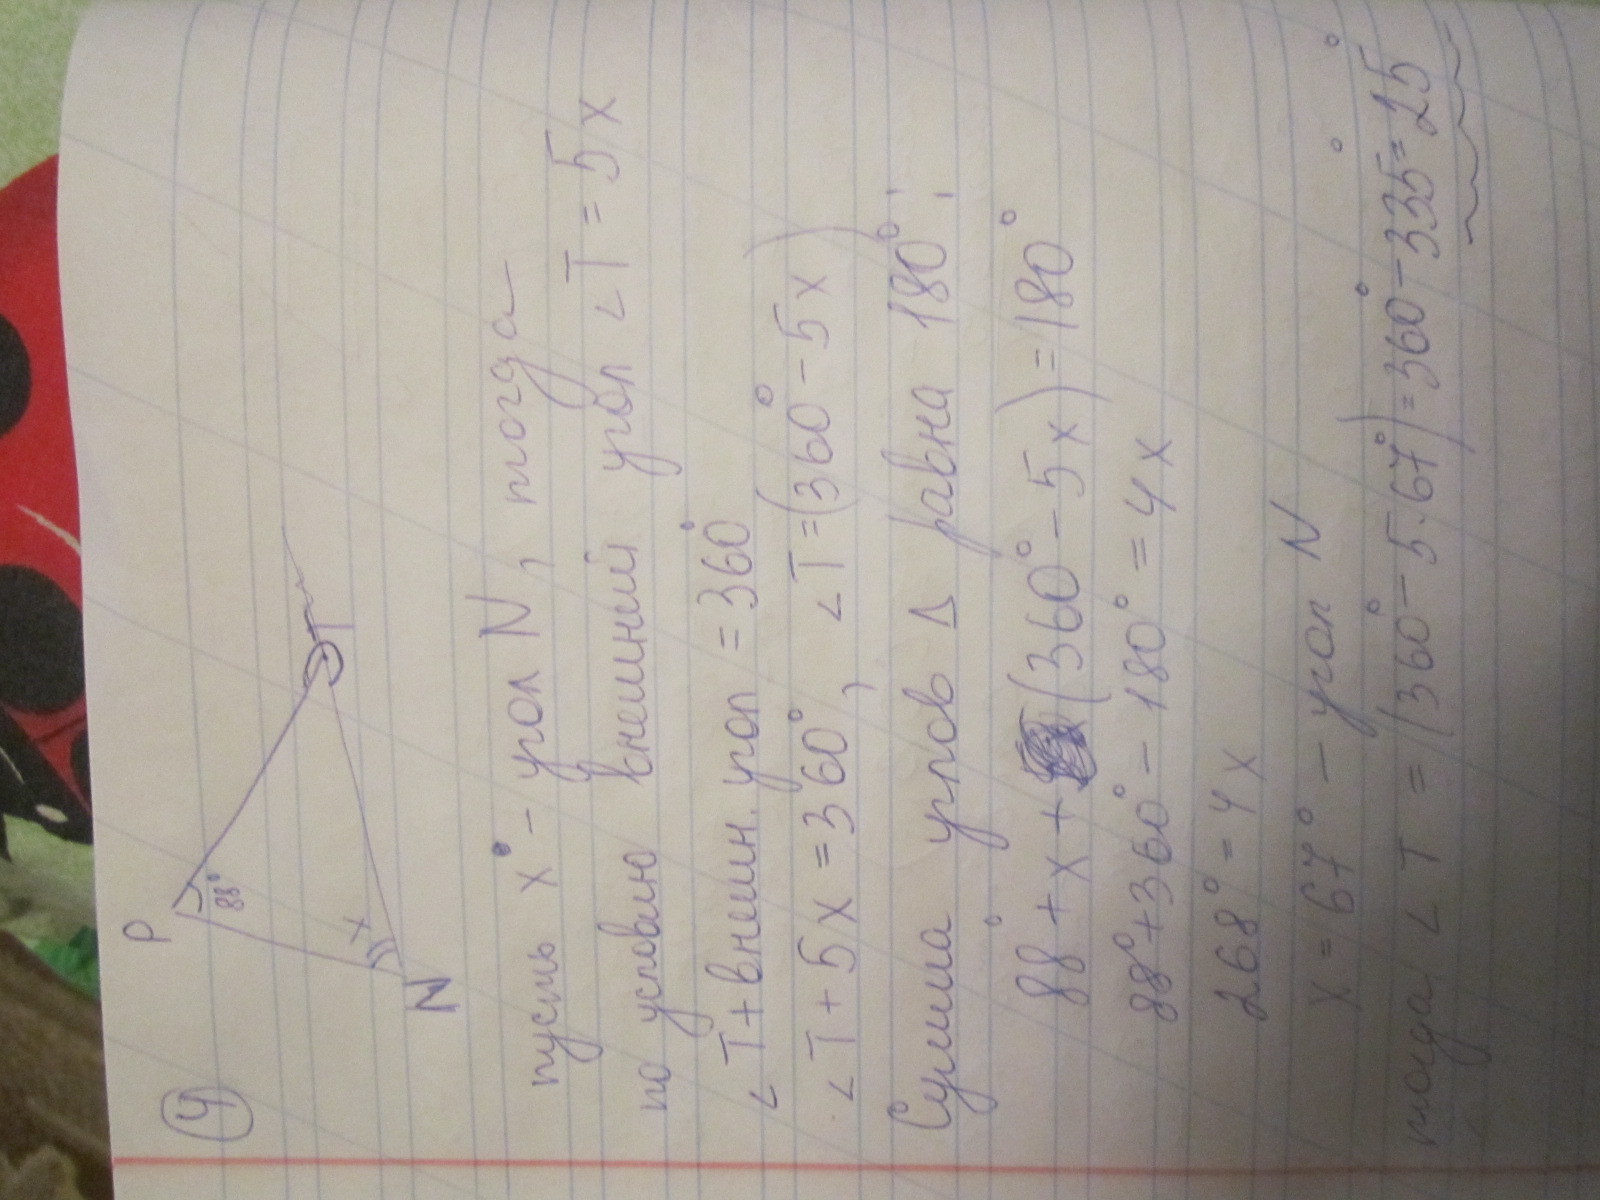 4
P
88°
x
N
T
пусть x° - угол N, тогда
по условию внешний угол ∠T = 5x
∠T + внешн. угол = 360°
∠T + 5x = 360°, ∠T = (360° - 5x)
Сумма углов Δ равна 180°;
88° + x + (360° - 5x) = 180°
88° + 360° - 180° = 4x
268° = 4x
x = 67° - угол N
тогда ∠T = (360° - 5·67°) = 360° - 335° = 25°